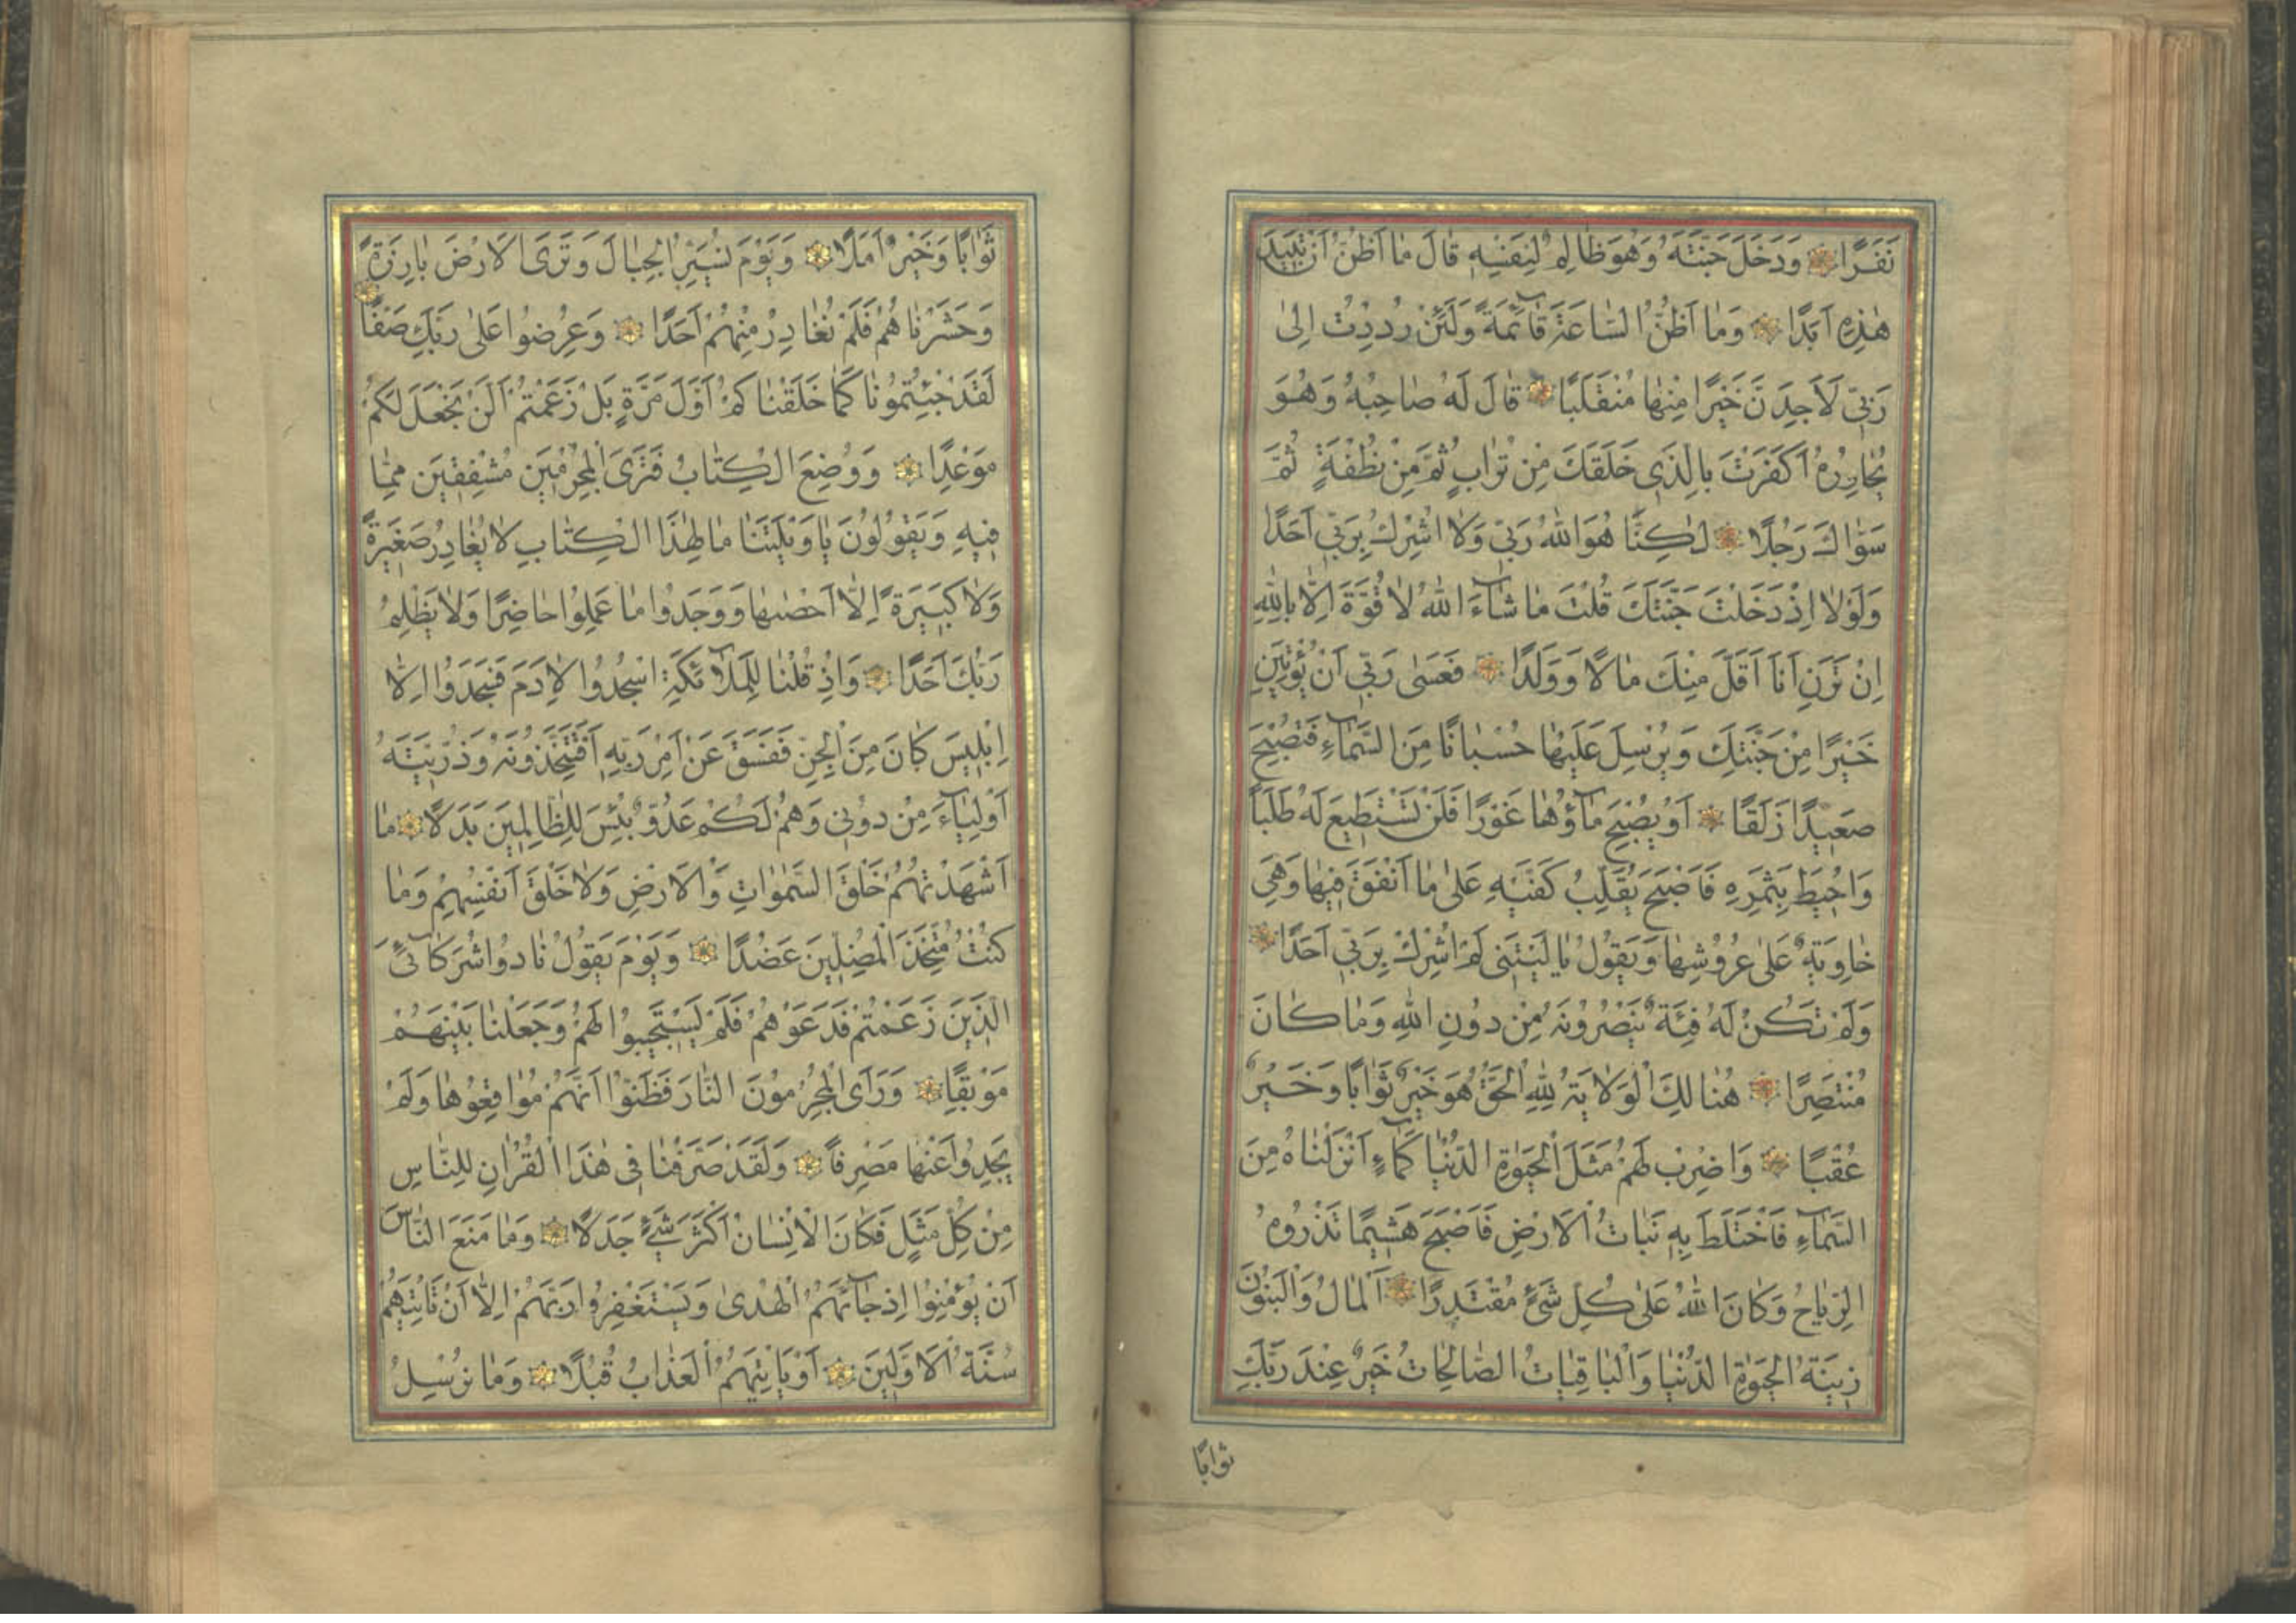 نَفَرًا وَدَخَلَ جَنَّتَهُ وَهُوَ ظَالِمٌ لِنَفْسِهِ قَالَ مَا اَظُنُّ اَنْ تَبِيدَ
هٰذِهِ اَبَدًا وَمَا اَظُنُّ السَّاعَةَ قَآئِمَةً وَلَئِنْ رُدِدْتُ اِلىٰ
رَبِّى لَاَجِدَنَّ خَيْرًا مِنْهَا مُنْقَلَبًا قَالَ لَهُ صَاحِبُهُ وَهُوَ
يُحَاوِرُهُ اَكَفَرْتَ بِالَّذِى خَلَقَكَ مِنْ تُرَابٍ ثُمَّ مِنْ نُطْفَةٍ ثُمَّ
سَوّٰاكَ رَجُلًا لٰكِنَّا هُوَ اللّٰهُ رَبِّى وَلَا اُشْرِكُ بِرَبِّى اَحَدًا
وَلَوْلَا اِذْ دَخَلْتَ جَنَّتَكَ قُلْتَ مَا شَآءَ اللّٰهُ لَا قُوَّةَ اِلَّا بِاللّٰهِ
اِنْ تَرَنِ اَنَا اَقَلَّ مِنْكَ مَالًا وَوَلَدًا فَعَسٰى رَبِّى اَنْ يُؤْتِيَنِ
خَيْرًا مِنْ جَنَّتِكَ وَيُرْسِلَ عَلَيْهَا حُسْبَانًا مِنَ السَّمَآءِ فَتُصْبِحَ
صَعِيدًا زَلَقًا اَوْ يُصْبِحَ مَآؤُهَا غَوْرًا فَلَنْ تَسْتَطِيعَ لَهُ طَلَبًا
وَاُحِيطَ بِثَمَرِهِ فَاَصْبَحَ يُقَلِّبُ كَفَّيْهِ عَلىٰ مَا اَنْفَقَ فِيهَا وَهِىَ
خَاوِيَةٌ عَلىٰ عُرُوشِهَا وَيَقُولُ يَا لَيْتَنِى لَمْ اُشْرِكْ بِرَبِّى اَحَدًا
وَلَمْ تَكُنْ لَهُ فِئَةٌ يَنْصُرُونَهُ مِنْ دُونِ اللّٰهِ وَمَا كَانَ
مُنْتَصِرًا هُنَالِكَ الْوَلَايَةُ لِلّٰهِ الْحَقِّ هُوَ خَيْرٌ ثَوَابًا وَخَيْرٌ
عُقْبًا وَاضْرِبْ لَهُمْ مَثَلَ الْحَيٰوةِ الدُّنْيَا كَمَآءٍ اَنْزَلْنَاهُ مِنَ
السَّمَآءِ فَاخْتَلَطَ بِهِ نَبَاتُ الْاَرْضِ فَاَصْبَحَ هَشِيمًا تَذْرُوهُ
الرِّيَاحُ وَكَانَ اللّٰهُ عَلىٰ كُلِّ شَىْءٍ مُقْتَدِرًا اَلْمَالُ وَالْبَنُونَ
زِينَةُ الْحَيٰوةِ الدُّنْيَا وَالْبَاقِيَاتُ الصَّالِحَاتُ خَيْرٌ عِنْدَ رَبِّكَ
ثوابًا
ثَوَابًا وَخَيْرٌ اَمَلًا وَيَوْمَ نُسَيِّرُ الْجِبَالَ وَتَرَى الْاَرْضَ بَارِزَةً
وَحَشَرْنَاهُمْ فَلَمْ نُغَادِرْ مِنْهُمْ اَحَدًا وَعُرِضُوا عَلىٰ رَبِّكَ صَفًّا
لَقَدْ جِئْتُمُونَا كَمَا خَلَقْنَاكُمْ اَوَّلَ مَرَّةٍ بَلْ زَعَمْتُمْ اَلَّنْ نَجْعَلَ لَكُمْ
مَوْعِدًا وَوُضِعَ الْكِتَابُ فَتَرَى الْمُجْرِمِينَ مُشْفِقِينَ مِمَّا
فِيهِ وَيَقُولُونَ يَا وَيْلَتَنَا مَا لِهٰذَا الْكِتَابِ لَا يُغَادِرُ صَغِيرَةً
وَلَا كَبِيرَةً اِلَّا اَحْصٰيهَا وَوَجَدُوا مَا عَمِلُوا حَاضِرًا وَلَا يَظْلِمُ
رَبُّكَ اَحَدًا وَاِذْ قُلْنَا لِلْمَلٰٓئِكَةِ اسْجُدُوا لِاٰدَمَ فَسَجَدُوا اِلَّا
اِبْلِيسَ كَانَ مِنَ الْجِنِّ فَفَسَقَ عَنْ اَمْرِ رَبِّهِ اَفَتَتَّخِذُونَهُ وَذُرِّيَّتَهُ
اَوْلِيَآءَ مِنْ دُونِى وَهُمْ لَكُمْ عَدُوٌّ بِئْسَ لِلظَّالِمِينَ بَدَلًا مَا
اَشْهَدْتُهُمْ خَلْقَ السَّمٰوَاتِ وَالْاَرْضِ وَلَا خَلْقَ اَنْفُسِهِمْ وَمَا
كُنْتُ مُتَّخِذَ الْمُضِلِّينَ عَضُدًا وَيَوْمَ يَقُولُ نَادُوا شُرَكَآئِىَ
الَّذِينَ زَعَمْتُمْ فَدَعَوْهُمْ فَلَمْ يَسْتَجِيبُوا لَهُمْ وَجَعَلْنَا بَيْنَهُمْ
مَوْبِقًا وَرَاَى الْمُجْرِمُونَ النَّارَ فَظَنُّوا اَنَّهُمْ مُوَاقِعُوهَا وَلَمْ
يَجِدُوا عَنْهَا مَصْرِفًا وَلَقَدْ صَرَّفْنَا فِى هٰذَا الْقُرْاٰنِ لِلنَّاسِ
مِنْ كُلِّ مَثَلٍ فَكَانَ الْاِنْسَانُ اَكْثَرَ شَىْءٍ جَدَلًا وَمَا مَنَعَ النَّاسَ
اَنْ يُؤْمِنُوا اِذْ جَآئَهُمُ الْهُدىٰ وَيَسْتَغْفِرُوا رَبَّهُمْ اِلَّا اَنْ تَاْتِيَهُمْ
سُنَّةُ الْاَوَّلِينَ اَوْ يَاْتِيَهُمُ الْعَذَابُ قُبُلًا وَمَا نُرْسِلُ